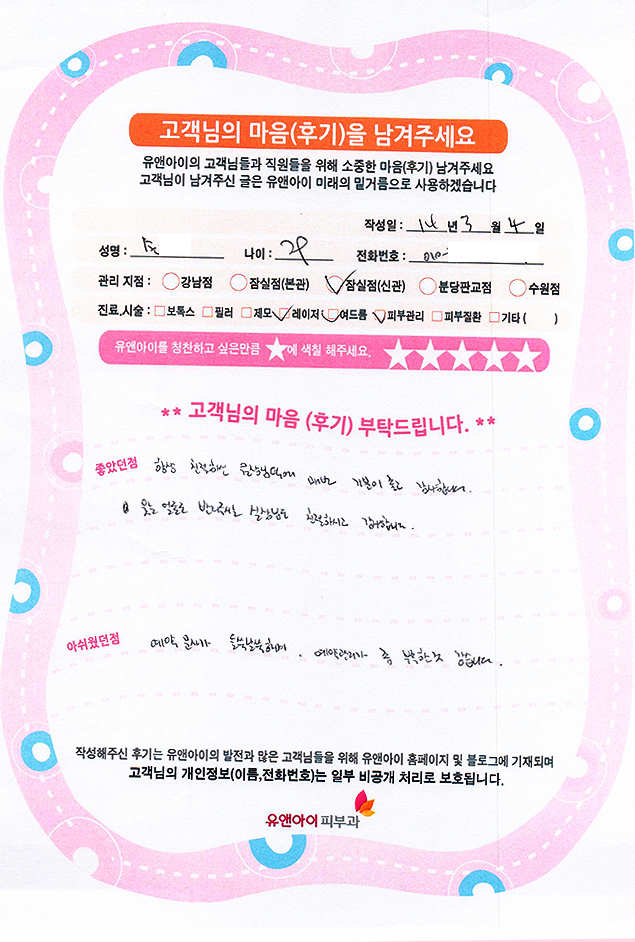 고객님의 마음(후기)을 남겨주세요
유앤아이의 고객님들과 직원들을 위해 소중한 마음(후기) 남겨주세요
고객님이 남겨주신 글은 유앤아이 미래의 밑거름으로 사용하겠습니다
작성일 : 14 년 3 월 4 일
성명 : 나이 : 전화번호 : 010-
관리 지점 : 강남점 잠실점(본관) 잠실점(신관) 분당판교점 수원점
진료,시술 : 보톡스 필러 제모 레이저 여드름 피부관리 피부질환 기타 ( )
유앤아이를 칭찬하고 싶은만큼 ★에 색칠 해주세요. ★★★★★
** 고객님의 마음 (후기) 부탁드립니다. **
좋았던점 항상 친절하신 원장님덕에 매번 기분이 좋고 감사합니다.
웃는 얼굴로 실장님도 친절하시고 감사합니다.
아쉬웠던점 예약 문자가 들쑥날쑥하며, 예약관리가 좀 부족한것 같습니다.
작성해주신 후기는 유앤아이의 발전과 많은 고객님들을 위해 유앤아이 홈페이지 및 블로그에 기재되며
고객님의 개인정보(이름,전화번호)는 일부 비공개 처리로 보호됩니다.
유앤아이 피부과